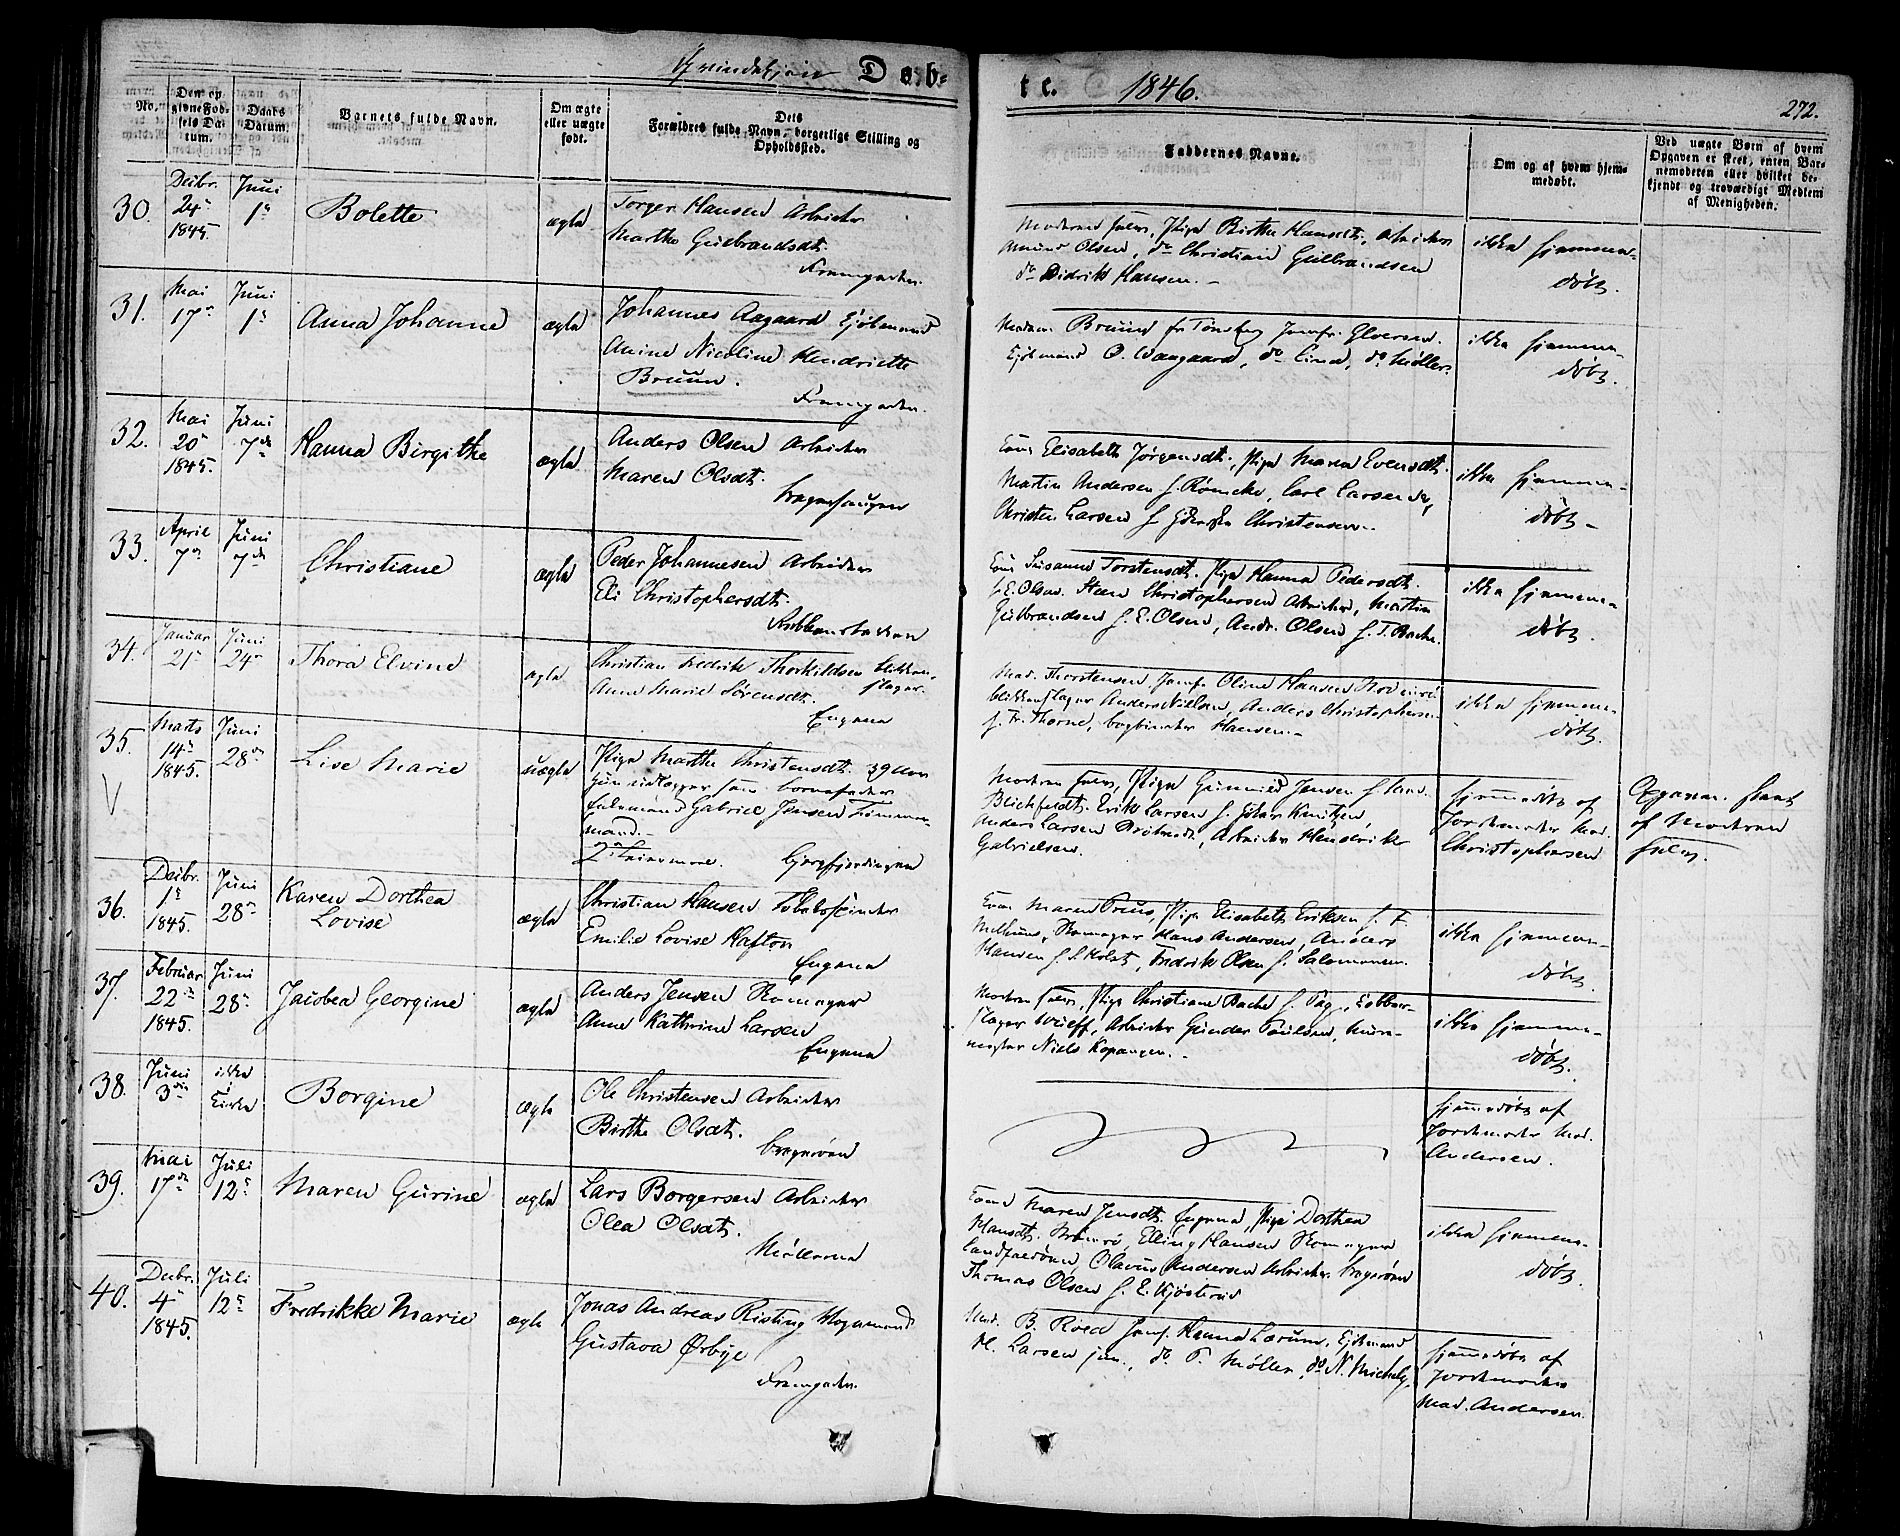 Qvindekjøn Døb-
te. 1846.
272.
No.
Den opgivne Fødsels Datum.
Daabs Datum.
Barnets fulde Navn.
Om ægte eller uægte født.
Dets Forældres fulde Navn, borgerlige Stilling og Opholdssted.
Faddernes Navne.
Om og af hvem hjemmedøbt.
Ved uægte Børn af hvem Opgaven er skeet, enten Barnemoderen eller hvilket bekjendt og troværdigt Medlem af Menigheden.
30.
Decbr.
24
1845.
Juni
1
Bolette
ægte
Torger Hansen Arbeider
Marthe Gulbrandsdt.
Moderen selv, Pige Birthe Hansdt., Arbeider
Olsen, do Christian Gulbrandsen
do Didrik Hansen.
ikke hjemme-
døbt.
31.
Mai
17
Juni
1
Anna Johanne
ægte
Johannes Aagaard Kjøbmand
Anine Nicoline Hendriette
Bruun.
Madam Bruun fr Tønsberg Jomfr.
Kjøbmand O. Waagaard, do Lund, do Møller.
ikke hjemme-
døbt.
32.
Mai
20
1845.
Juni
7de
Hanna Birgithe
ægte
Anders Olsen Arbeider
Maren Olsdt.
Kone Elisabeth Jørgensdt., Pige Maren Evensdt.
Martin Andersen f. Carl Larsen
Christen Larsen f. Christensen.
ikke hjemme-
døbt
33.
April
7de
Juni
7de
Christiane
ægte
Peder Johannesen Arbeider
Eli Christophersdt.
Kone Susanne Torstensdt. Pige Hanna Pedersdt.
f. E. Olsen. Steen Christophersen Arbeider, Martin
Gulbrandsen f. E. Olsen, Andr. Olsen f. T. Bache.
ikke hjemme-
døbt.
34.
Januar
21
Juni
24
Thora Elvine
ægte
Christian Fredrik Thorkildsen Blikken-
slager.
Anne Marie Sørensdt.
Engene
Mad. Thorstensen Jomfr. Oline Hansen
Blikkenslager Anders Nielsen, Anders Christophersen
f. Fr. Thorne, bogbinder Hansen.
ikke hjemme-
døbt.
35.
Marts
14
1845.
Juni
28
Lise Marie
uægte
Pige Marthe Christensdt. 39 Aar
Gabriel Jensen Tømmer-
mand.
Moderen selv, Pige Gunnild Jensen f.
Blichfeldt. Erik Larsen f.
Anders Larsen Arbeider Hendrik
Gabrielsen.
hjemmedøbt af
Jordemoder Mad.
Christophersen
Opgaven skeet
af Moderen
selv.
36.
Decbr.
1
1845.
Juni
28
Karen Dorthea
Lovise
ægte
Christian Hansen
Emilie Lovise Hafton
Engene
Kone Maren Preus, Pige Elisabeth Eriksen f. F.
Hans Andersen, Anders
Hansen f. Fredrik Olsen f. Salomonsen.
ikke hjemme-
døbt.
37.
Februar
22
1845.
Juni
28
Jacobea Georgine
ægte
Anders Jensen
Anne Kathrine Larsen
Engene
Moderen selv, Pige Christiane Bache f. Kobber-
slager Wulff, Arbeider Gunder Paulsen, Muur-
mester Niels Kopangen.
ikke hjemme-
døbt.
38.
Juni
3die
ikke
i
Kirke
Borgine
ægte
Ole Christensen Arbeider
Birthe Olsdt.
Bragerøen
hjemmedøbt af
Jordemoder Mad.
Andersen.
39.
Mai
17de
Juli
12
Maren Gurine
ægte
Lars Borgersen Arbeider
Olea Olsdt.
Møllerne
Kone Maren Jensdt. Engene, Pige Dorthea
Hansdt. Elling Hansen
Landfaldøen, Olavus Andersen Arbeider Bragerøen
Thomas Olsen f. E. Kjøsterud
ikke hjemme-
døbt.
40.
Decbr.
4
1845.
Juli
12
Fredrikke Marie
ægte
Jonas Andreas Risting
Gustava Ørbye
Mad. B. Roed Jomf. Hanna Lærum, Kjøbmand
H. Larsen jun., do P. Møller, do N. Michelsen
hjemmedøbt af
Jordemoder
Mad. Andersen.